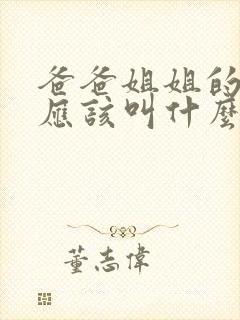 爸爸姐姐的
應該叫什麼
董志偉